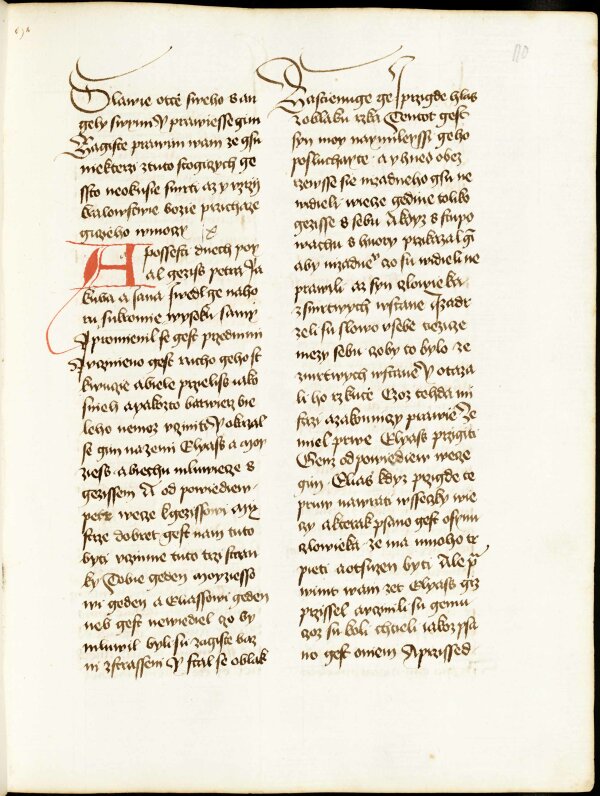 110
Slawie otcě sweho s an
gely swymi Y prawiesse gim
Zagiste prawim wam ze gsu
niekterzi z tuto stogiczych ge
ssto neokusie smrti az y vzrzij
kralowstwie bozie przichaze
giczieho w moczy
A possesti dnech poy
al gezijs petra Ja
kuba a Jana y wedl ge naho
ru sukromie wysoku samy
A promienil se gest przed nimi
A vczinieno gest rucho geho st
kwucie a biele przielis iako
snieh a yakozto barwierz bie
leho nemoz vcziniti Y okazal
se gim na zemi Elyass a moy
ziess a biechu mluwiecze s
gezissem A od powiediew
petr wecze k gezissowi Miy
strze dobret gest nam tuto
byti vczinme tuto trzi stan
ky Tobie geden moyziesso
wi geden a Eliassowi geden
neb gest newiediel czo by
mluwil byli su zagiste baz
ni zstrasseni Y stal se oblak
Zascieniuge ge Y przigde hlas
z oblaku rzka Tentot gest
syn moy naymileyssi geho
posluchayte a yhned obez
rzewsse sie nizadneho gsu ne
widieli wiecze gedine toliko
gezisse s sebu A kdyz s stupo
wachu s huory przikazal gim
aby nizadnemu czo su widieli ne
prawili az syn czlowieka
z smrtwych wstane Y zadr
zeli su slowo v sebe tiezicze
mezy sebu czo by to bylo ze
zmrtwych wstane Y otaza
li ho rzkuce Czoz tehda mi
strzi a zakonniczy prawie Ze
miel prwe Elyass przigiti
Genz odpowiediew wecze
gim Elias kdyz przigde te
pruw nawrati wsseczky wie
czy a kterak psano gest o synu
czlowieka ze ma mnoho tr
pieti a otsuzen byti Ale pra
wimt wam zet Elyass giz
przissel a vczinili su gemu
czoz su koli chtieli iakoz psa
no gest o niem A przissed